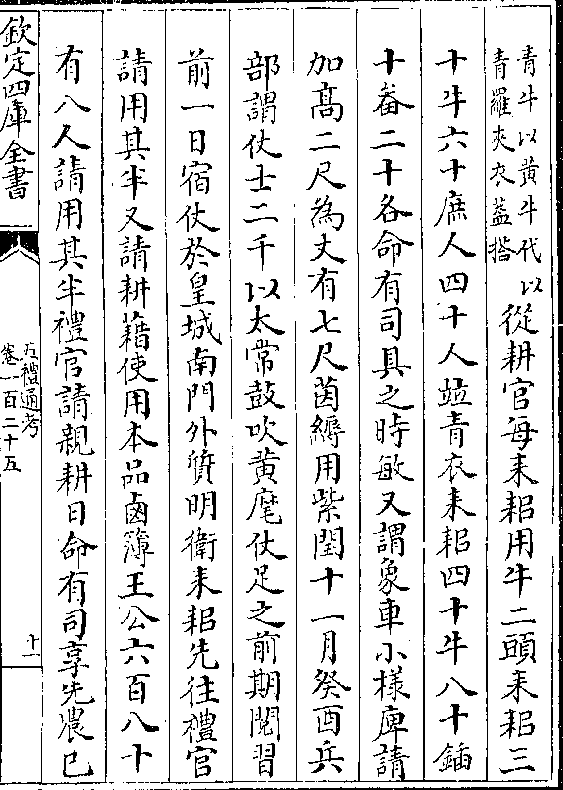 青牛以黄牛代以
青羅夾衣葢搭
從耕官每耒耜用牛二頭耒耜三
十牛六十庶人四十人並青衣耒耜四十牛八十鍤
十畚二十各命有司具之時敏又謂象車小様庳請
加髙二尺為丈有七尺茵縟用紫閏十一月癸酉兵
部謂仗士二千以太常鼓吹黄麾仗足之前期閲習
前一日宿仗於皇城南門外質明衛耒耜先往禮官
請用其半又請耕藉使用本品鹵簿王公六百八十
有八人請用其半禮官請親耕日命有司享先農已
欽定四庫全書
五禮通考
卷一百二十五
十一